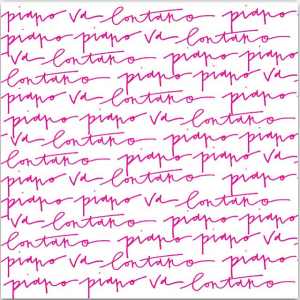 piano va lontano piano
piano piano va lontano
va lontano piano piano
lontano piano piano
piano va lontano piano
piano piano va lontano
va lontano piano piano
lontano piano piano
piano va lontano piano
piano piano va lontano
va lontano piano piano
lontano piano piano
piano piano va lontano